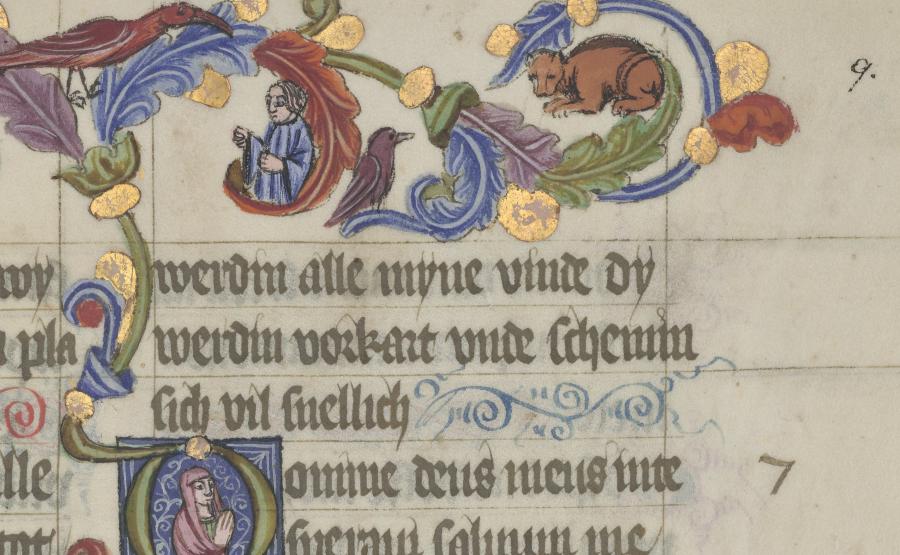 9.
wy
werdin alle myne vinde dy
pla
werdin vorkart vnde schemin
sich vil snellich
lle
Domine deus meus in te
7
tot
speraui saluum me